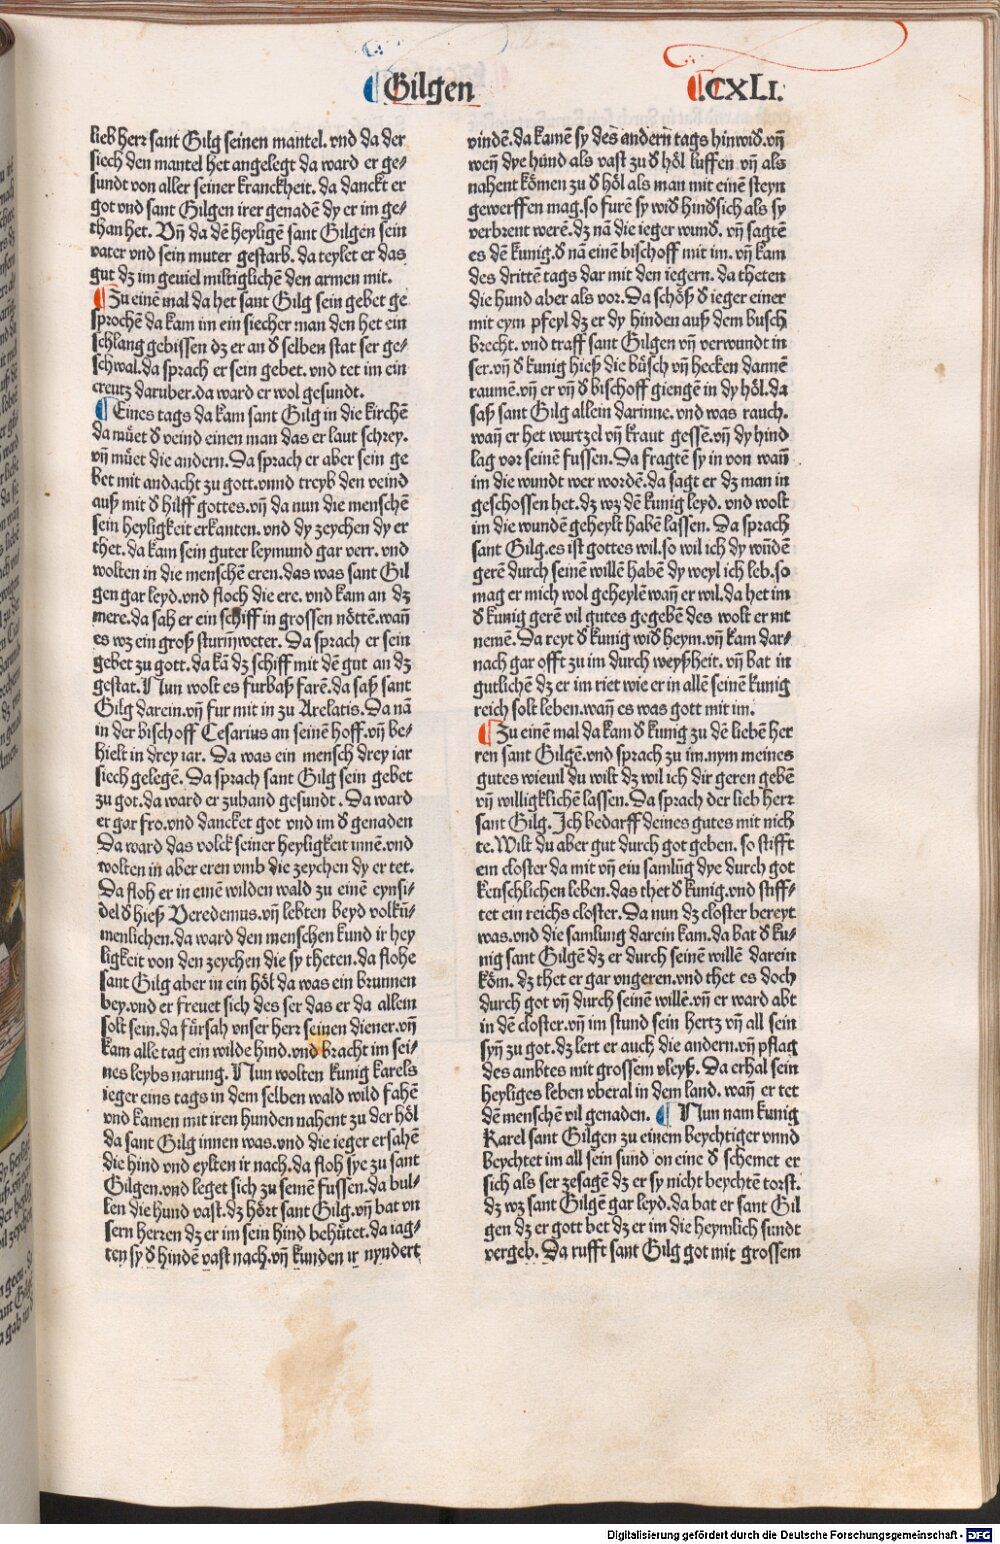 Gilgen
.CXLI.
lieb herr sant Gilg seinen mantel. vnd da der
siech den mantel het angelegt da ward er ge⸗
sundt von aller seiner kranckheit. da danckt er
got vnd sant Gilgen irer genadẽ dy er im ge⸗
than het. Vñ da dẽ heyligẽ sant Gilgen sein
vater vnd sein muter gestarb. da teylet er das
gut dz im geviel miltiglichẽ den armen mit.
Zu einẽ mal da het sant Gilg sein gebet ge
sprochẽ da kam im ein siecher man den het ein
schlang gebissen dz er an d̕ selben stat ser ge⸗
schwal. da sprach er sein gebet. vnd tet im ein
creutz daruber. da ward er wol gesundt.
Eines tags da kam sant Gilg in die kirchẽ
da müet d̕ veind einen man das er laut schrey.
vñ müet die andern. Da sprach er aber sein ge
bet mit andacht zu gott. vnnd treyb den veind
auß mit d̕ hilff gottes. vñ da nun die menschẽ
sein heyligkeit erkanten. vnd dy zeychen dy er
thet. da kam sein guter leymund gar verr. vnd
wolten in die menschẽ eren. das was sant Gil
gen gar leyd. vnd floch die ere. vnd kam an dz
mere. da sah er ein schiff in grossen nöttẽ. wañ
es wz ein groß sturm̃weter. Da sprach er sein
gebet zu gott. da kã dz schiff mit dẽ gut an dz
gestat. Nun wolt es furbaß farẽ. da saß sant
Gilg darein. vñ fur mit in zu Arelatis. Da nã
in der bischoff Cesarius an seinẽ hoff. vñ be⸗
hielt in drey iar. Da was ein mensch drey iar
siech gelegẽ. Da sprach sant Gilg sein gebet
zu got. da ward er zuhand gesundt. Da ward
er gar fro. vnd dancket got vnd im d̕ genaden
Da ward das volck seiner heyligkeit innẽ. vnd
wolten in aber eren vmb die zeychen dy er tet.
Da floh er in einẽ wilden wald zu einẽ eynsi⸗
del d̕ hieß Veredemus. vñ lebten beyd volkũ⸗
menlichen. da ward den menschen kund ir hey
ligkeit von den zeychen die sy theten. da flohe
sant Gilg aber in ein höl da was ein brunnen
bey. vnd er frewet sich des ser das er da allein
solt sein. da fürsah vnser herr seinen diener. vñ
kam alle tag ein wilde hind. vnd bracht im sei⸗
nes leybs narung. Nun wolten kunig karels
ieger eins tags in dem selben wald wild fahẽ
vnd kamen mit iren hunden nahent zu der höl
da sant Gilg innen was. vnd die ieger ersahẽ
die hind vnd eylten ir nach. da floh sye zu sant
Gilgen. vnd leget sich zu seinẽ fussen. da bul⸗
len die hund vast. dz hört sant Gilg. vñ bat vn
sern herren dz er im sein hind behütet. da iag⸗
ten sy d̕ hindẽ vast nach. vñ kunden ir nyndert
vindẽ. da kamẽ sy des andern tags hinwid̕. vñ
weñ dye hund als vast zu d̕ höl luffen vñ als
nahent kömen zu d̕ höl als man mit einẽ steyn
gewerffen mag. so furẽ sy wid̕ hind̕sich als sy
verbrent werẽ. dz nã die ieger wund̕. vñ sagtẽ
es dẽ kunig. d̕ nã einẽ bischoff mit im. vñ kam
des drittẽ tags dar mit den iegern. da theten
die hund aber als vor. Da schöß d̕ ieger einer
mit eym pfeyl dz er dy hinden auß dem busch
brecht. vnd traff sant Gilgen vñ verwundt in
ser. vñ d̕ kunig hieß die büsch vñ hecken dannẽ
raumẽ. vñ er vñ d̕ bischoff giengẽ in dy höl. da
saß sant Gilg allein darinne. vnd was rauch.
wañ er het wurtzel vñ kraut gessẽ. vñ dy hind
lag vor seinẽ fussen. Da fragtẽ sy in von wañ
im die wundt wer wordẽ. da sagt er dz man in
geschossen het. dz wz dẽ kunig leyd. vnd wolt
im die wundẽ geheylt habẽ lassen. Da sprach
sant Gilg. es ist gottes wil. so wil ich dy wũdẽ
gerẽ durch seinẽ willẽ habẽ dy weyl ich leb. so
mag er mich wol geheylẽ wañ er wil. da het im
d̕ kunig gerẽ vil gutes gegebẽ des wolt er nit
nemẽ. Da reyt d̕ kunig wid̕ heym. vñ kam dar⸗
nach gar offt zu im durch weyßheit. vñ bat in
gutlichẽ dz er im riet wie er in allẽ seinẽ kunig
reich solt leben. wañ es was gott mit im.
Zu einẽ mal da kam d̕ kunig zu dẽ liebẽ her
ren sant Gilgẽ. vnd sprach zu im. nym meines
gutes wieuil du wilt dz wil ich dir geren gebẽ
vñ willigklichẽ lassen. Da sprach der lieb herr
sant Gilg. Ich bedarff deines gutes mit nich
te. Wilt du aber gut durch got geben. so stifft
ein closter da mit vñ ein samlũg dye durch got
keuschlichen leben. das thet d̕ kunig. vnd stiff⸗
tet ein reichs closter. Da nun dz closter bereyt
was. vnd die samlung darein kam. da bat d̕ ku⸗
nig sant Gilgẽ dz er durch seinẽ willẽ darein
köm. dz thet er gar vngeren. vnd thet es doch
durch got vñ durch seinẽ willẽ. vñ er ward abt
in dẽ closter. vñ im stund sein hertz vñ all sein
syñ zu got. dz lert er auch die andern. vñ pflag
des ambtes mit grossem vleyß. Da erhal sein
heyliges leben vberal in dem land. wañ er tet
dẽ menschẽ vil genaden. Nun nam kunig
Karel sant Gilgen zu einem beychtiger vnnd
beychtet im all sein sund on eine d̕ schemet er
sich als ser zesagẽ dz er sy nicht beychtẽ torst.
dz wz sant Gilgẽ gar leyd. da bat er sant Gil
gen dz er gott bet dz er im die heymlich sundt
vergeb. Da rufft sant Gilg got mit grossem
Digitalisierung gefördert durch die Deutsche Forschungsgemeinschaft - DFG